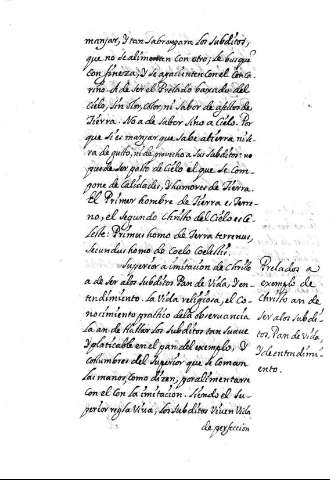 manjar, Y tan sabroso para los Subditos,
que no se alimenten con otro; le busquen
con fineza, Y se apacienten con el con ca-
riño. A de ser el Prelado baxado del
cielo, sin olor, color, ni sabor de afectos de
Tierra. No a de sabor sino a Cielo. Por
que si es manjar que sabe a tierra ni se-
ra de gusto, ni de provecho a sus Subditos: no
puede ser pasto de Cielo el que se com-
pone de Calidades, Y humores de Tierra.
El Primer hombre de Tierra es Terre-
no, el segundo Christo del Cielo es Ce-
leste: Primus homo de Terra terrenus,
secundus homo de Coelo Coelestis.
Superior a imitacion de Christo
a de Ser a los Subditos Pan de Vida, Y en-
tendimiento. La Vida religiosa, el Co-
nocimiento practico de la observancia
la an de hallar los Subditos tan suave
Y platicable en el pan del exemplo, Y
costumbres del Superior que se coman
las manos, como dizen, por alimentarse
con el con la imitacion. Siendo el Su-
perior regla Viva, los Subditos Viven Vida
de perfeccion
Prelados a
exemplo de
Christo an de
Ser a los Subdi-
tos, Pan de Vida,
Y de entendimi-
ento.